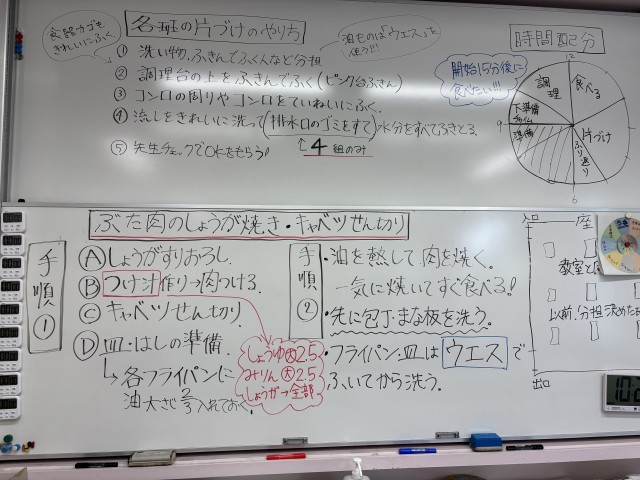 各班の片づけのやり方
食器カゴも
きれいにふく
油ものは「ウエス」を
使う!!!
① 洗い物、ふきんでふく人など分担
② 調理台の上をふきんでふく(ピンク台ふきん)
③ コンロの周りやコンロをていねいにふく。
④ 流しをきれいに洗って(排水口のゴミをすて)水分をすべてふきとる。
↑4組のみ
⑤ 先生チェックでOKをもらう!
時間配分
開始15分後に
食べたい!!!
12
9
6
調理
食べる
下準備
準備
片づけ
ふり返り
ぶた肉のしょうが焼き・キャベツせん切り
手順①
Ⓐ しょうがすりおろし。
Ⓑ つけ汁作り→肉つける。
Ⓒ キャベツせん切り。
Ⓓ 皿・はしの準備。
↳各フライパンに
油大さじ2/3入れておく。
しょうゆ大2.5
みりん大2.5
しょうが→全部
手順②
・油を熱して肉を焼く。
一気に焼いてすぐ食べる!
・先に包丁・まな板を洗う。
・フライパン・皿はウエスで
ふいてから洗う。
入口
座
教室と
以前、分担決めた
出口